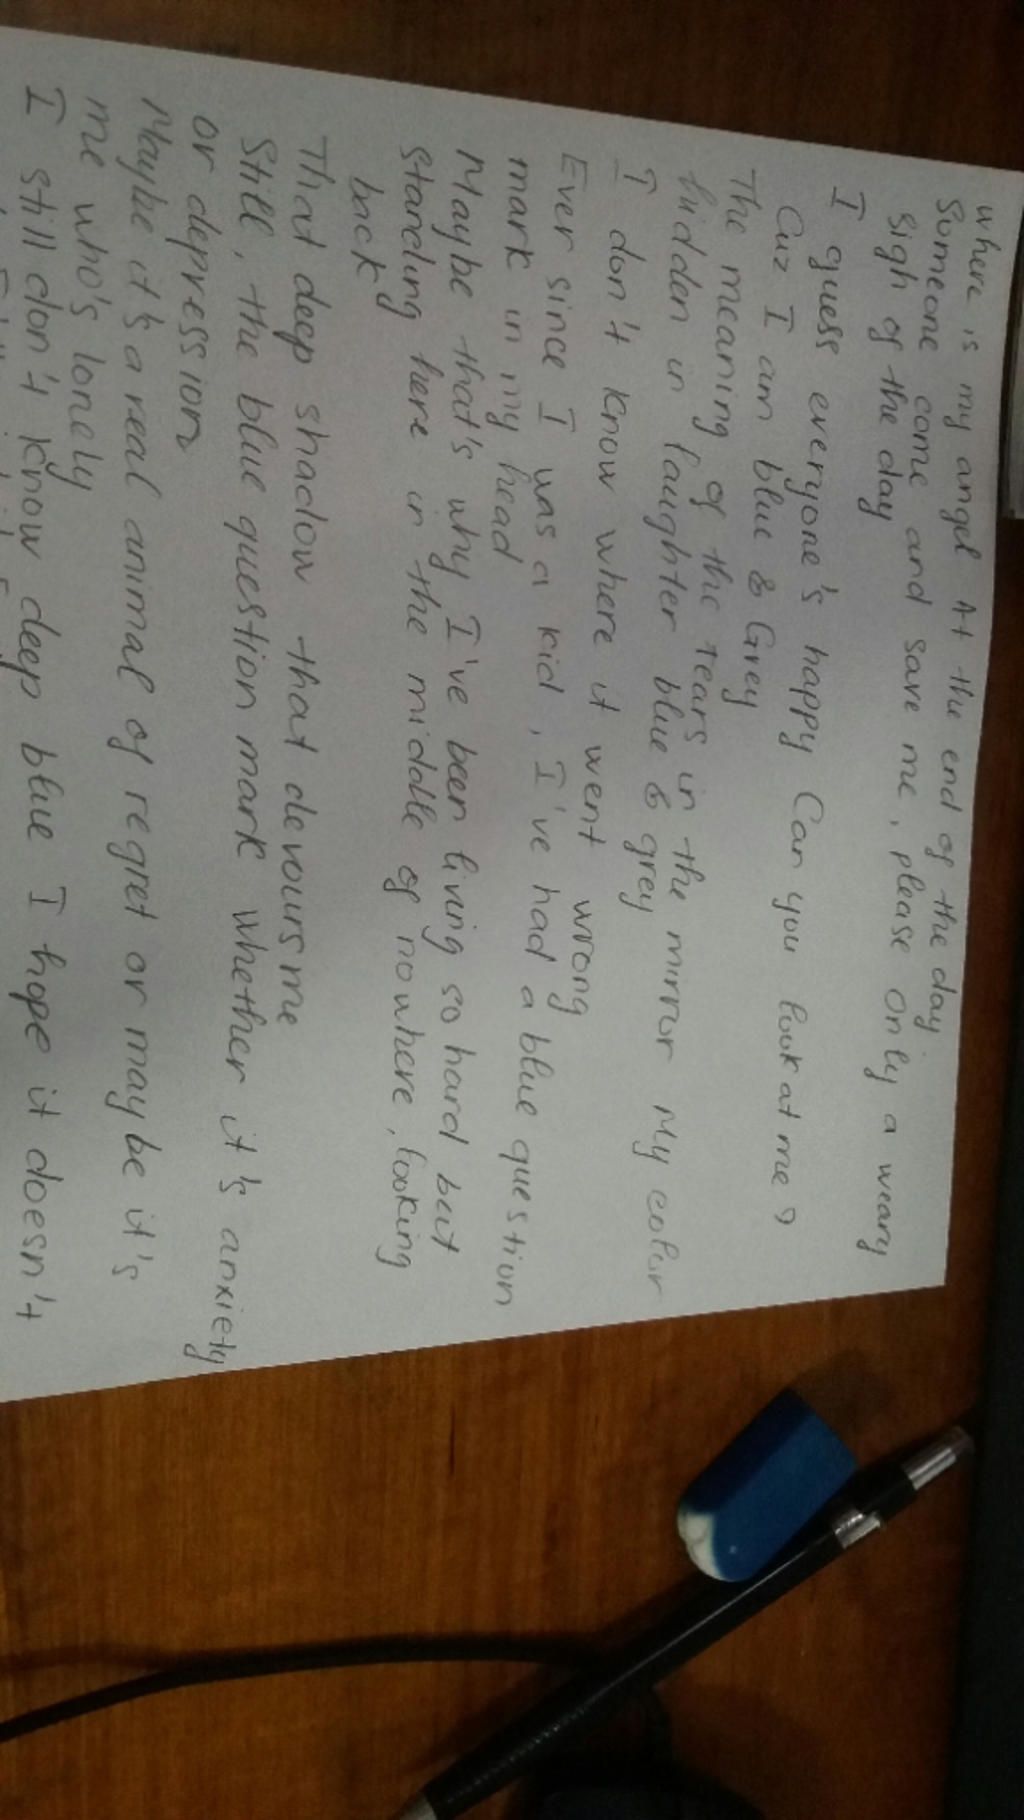 where is my angel At the end of the day
Someone come and save me, please only a weary
sigh of the day
I guess everyone's happy Can you look at me?
Cuz I am blue & Grey
The meaning of the tears in the mirror My color
hidden in laughter blue & grey
I don't know where it went wrong
Ever since I was a kid, I've had a blue question
mark in my head
Maybe that's why I've been living so hard but
standing here in the middle of nowhere, looking
back
That deep shadow that devours me
Still, the blue question mark whether it's anxiety
or depression
Maybe it's a real animal of regret or maybe it's
me who's lonely
I still don't know deep blue I hope it doesn't